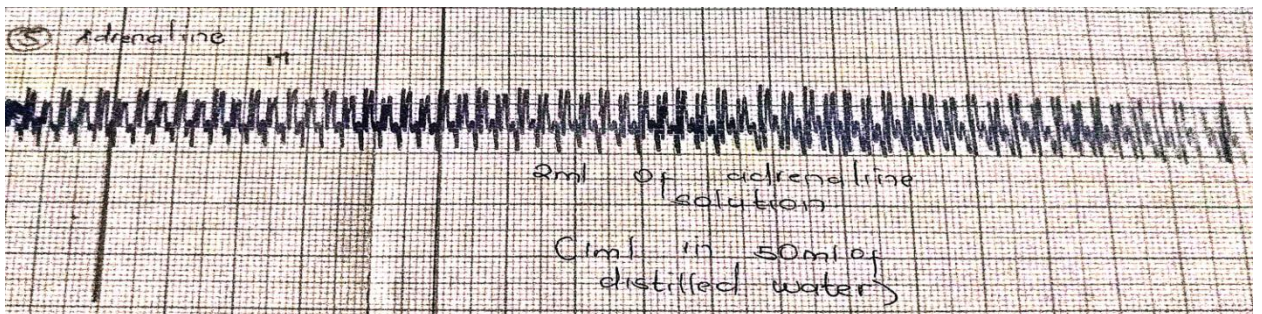 ⑤ Adrenaline
2ml of adrenaline
solution
(1ml in 50ml of
distilled water)